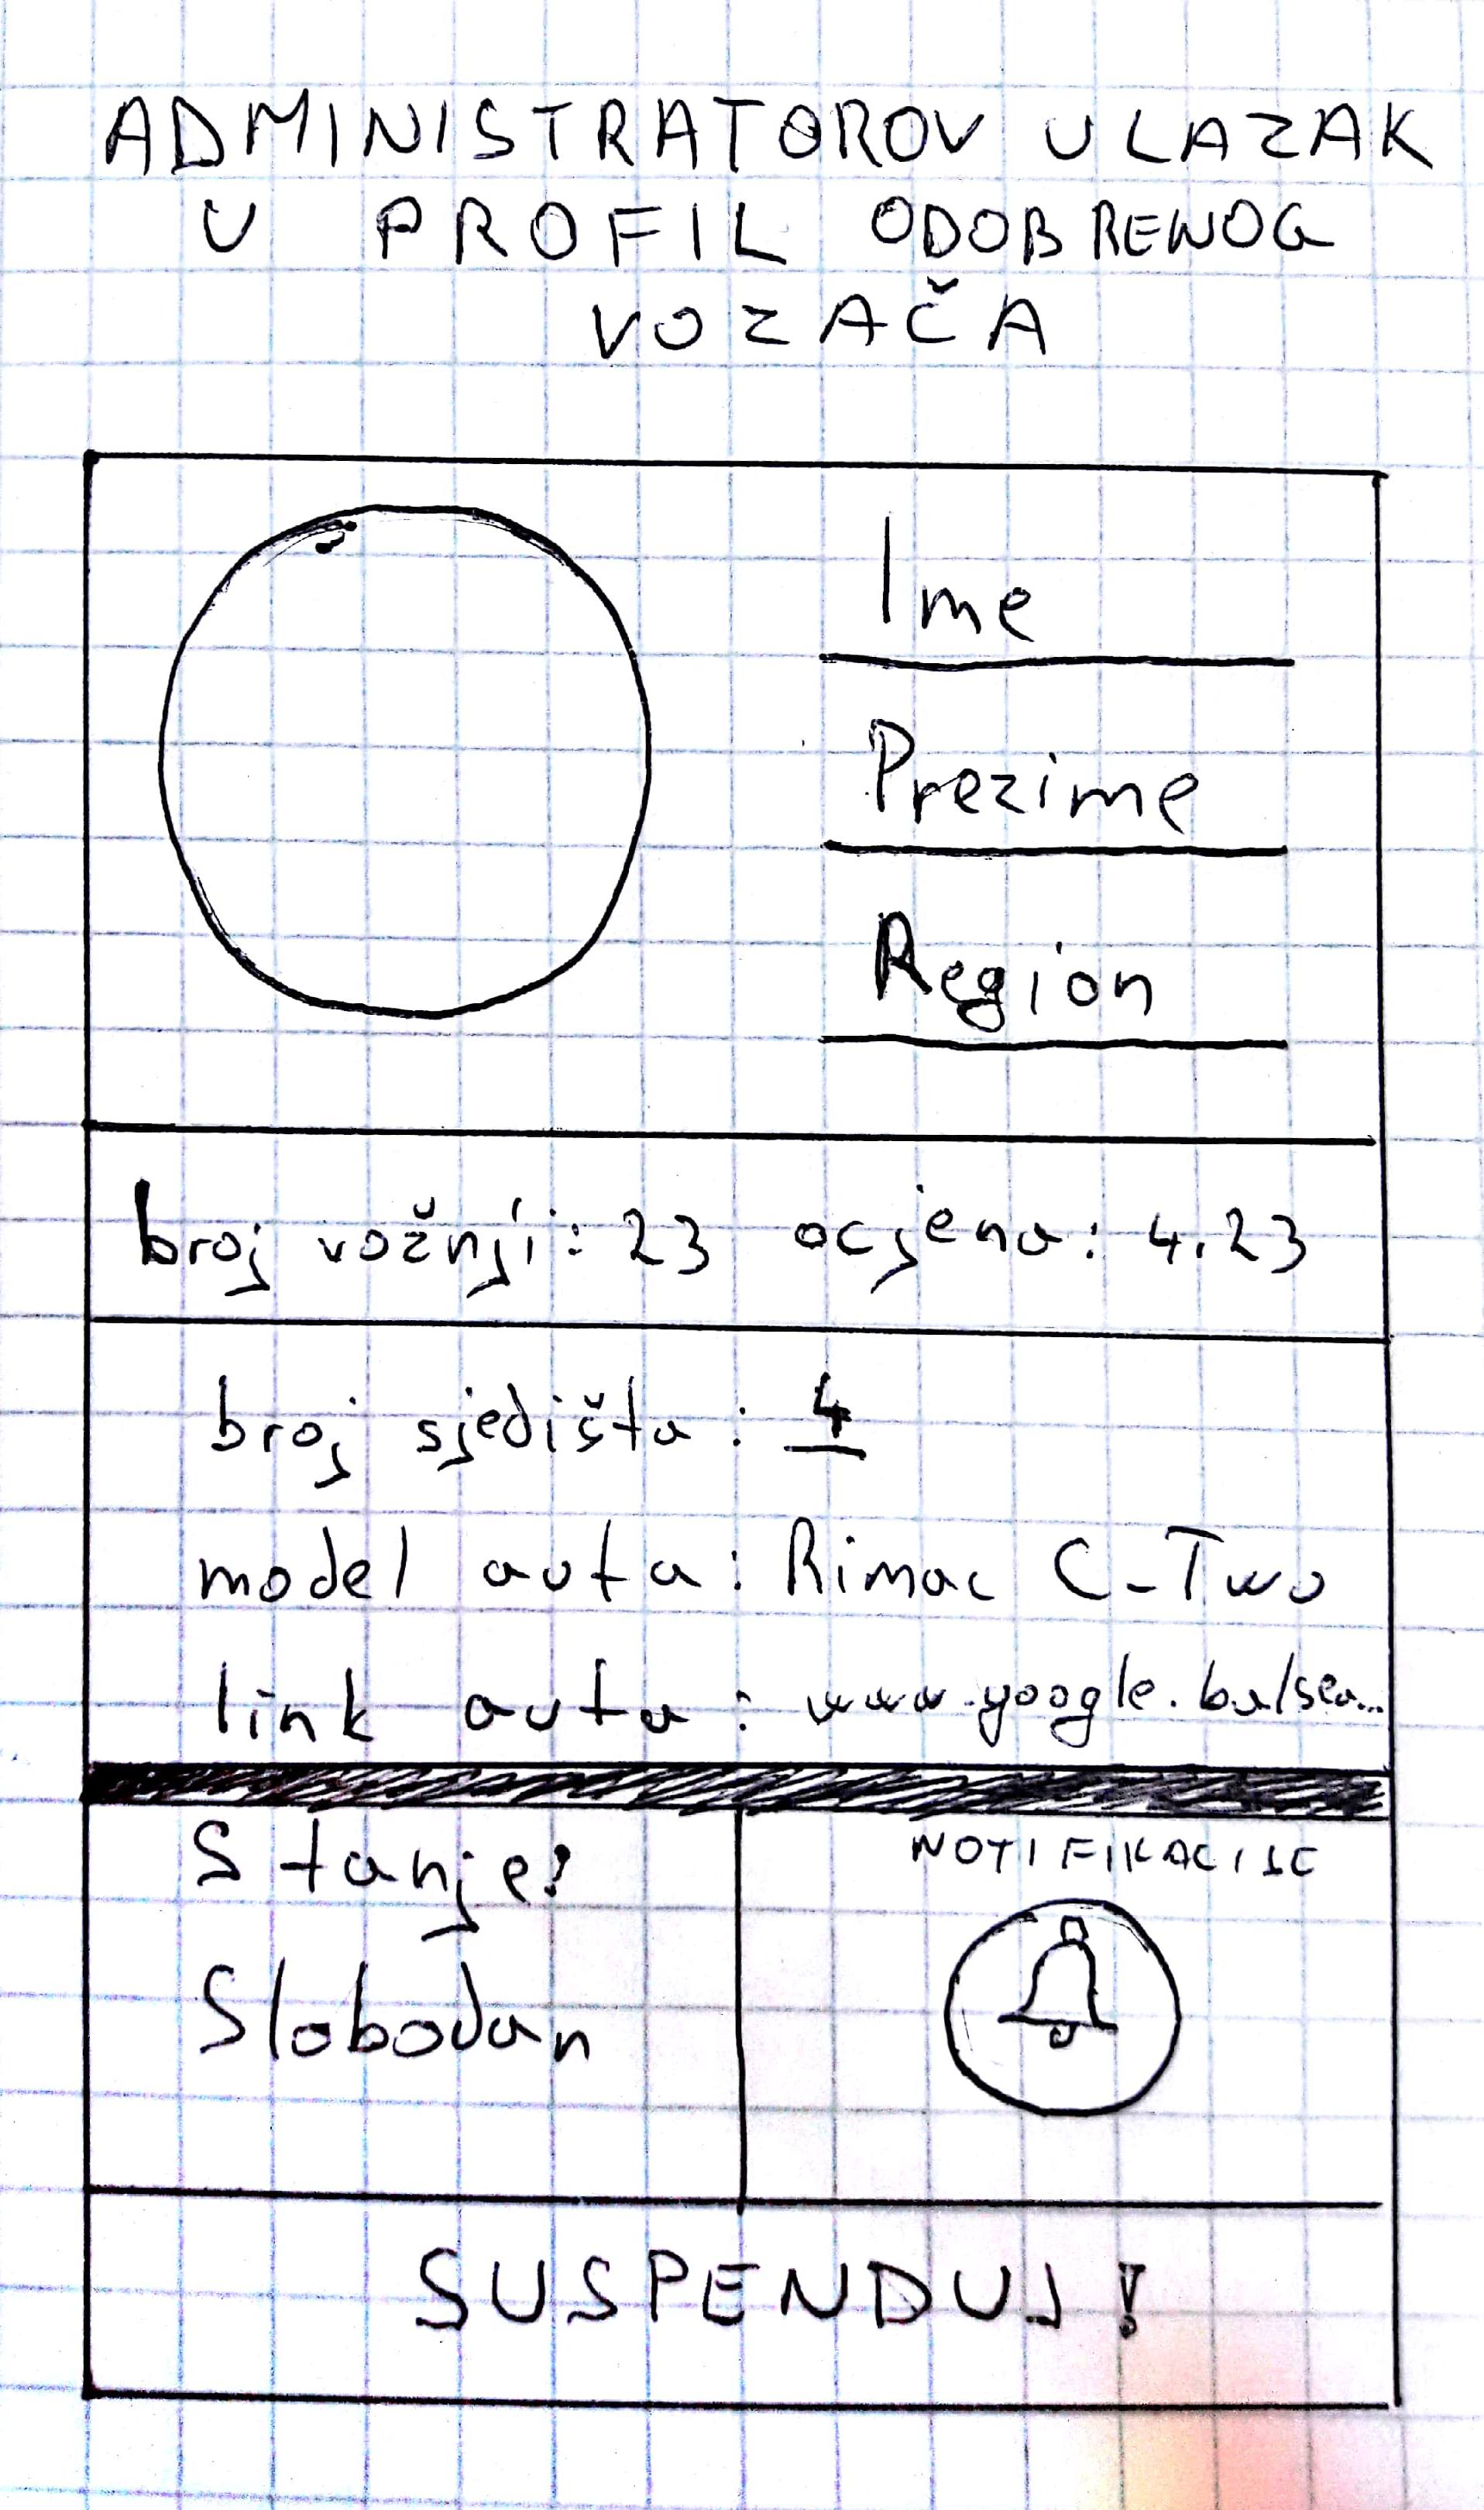 ADMINISTRATOROV ULAZAK
U PROFIL ODOBRENOG
VOZAČA
Ime
Prezime
Region
broj vožnji: 23 ocjena: 4.23
broj sjedišta: 4
model auta: Rimac C-Two
link auta: www.google.ba/sea...
Stanje:
NOTIFIKACIJE
Slobodan
SUSPENDUJ!